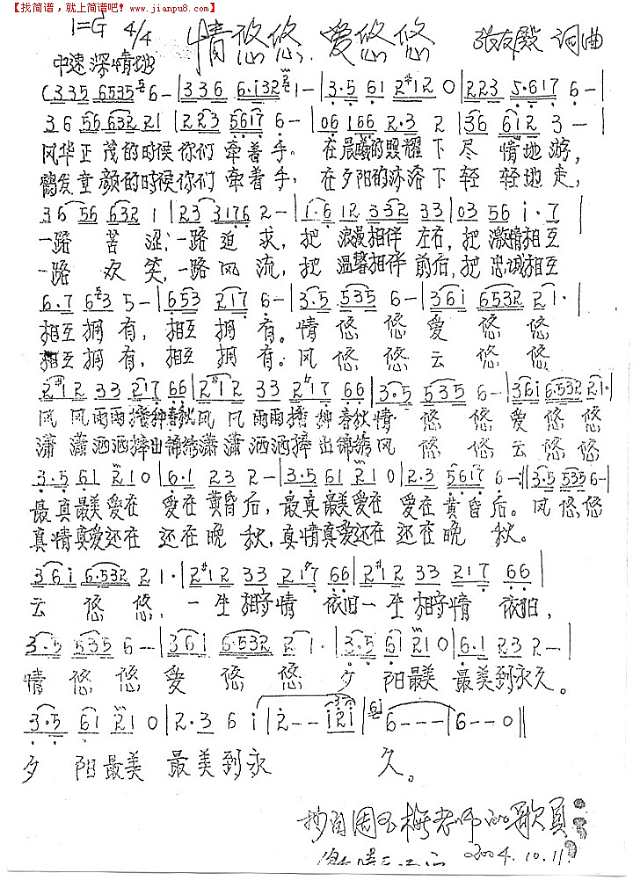 【找简谱，就上简谱吧！】
www.jianpu8.com
1=G 4/4 情悠悠 爱悠悠 词曲
中速 深情地
(335 6535 6- | 336 6.i32 1- | 3.5 61 2#12 0 | 223 5.617 6- |
36 56 632 21 | 223 5617 6- | 06 166 2.3 2 | 36 612 3- |
风华正茂的时候你们牵着手。在晨曦的照耀下尽情地游，
鹤发童颜的时候你们牵着手，在夕阳的沐浴下轻轻地走，
36 56 632 1 | 23 3176 2- | 1.6 12 332 33 | 03 56 i.7 |
一路苦涩，一路追求，把浪漫相伴左右，把激情相互
一路欢笑，一路风流，把温馨相伴前后，把忠诚相互
6.7 653 5- | 653 217 6- | 3.5 535 6- | 36i 6532 21. |
相互拥有，相互拥有。情悠悠爱悠悠
相互拥有，相互拥有。风悠悠云悠悠
2#12 33 217 66 | 2#12 33 217 66 | 3.5 535 6- | 36i 6.532 21. |
风风雨雨播种春秋风风雨雨播种春秋情悠悠爱悠悠
潇潇洒洒捧出锦绣潇潇洒洒捧出锦绣风悠悠云悠悠
3.5 61 210 | 6.1 23 2- | 3.5 61 210 | 2.3 5617 6- :| 3.5 535 6- |
最真最美爱在爱在黄昏后，最真最美爱在爱在黄昏后。风悠悠
真情真爱还在还在晚秋，真情真爱还在还在晚秋。
36i 6.532 21. | 2#12 33 217 66 | 2#12 33 217 66 |
云悠悠，一生相守情依旧一生相守情依旧，
3.5 535 6- | 36i 6.532 21. | 3.5 61 210 | 6.1 23 2- |
情悠悠爱悠悠夕阳最美最美到永久。
3.5 61 210 | 2.3 6 i | 2-- i2i | 6--- | 6--0 ||
夕阳最美最美到永久。
抄自周玉梅老师的歌页
2004.10.11